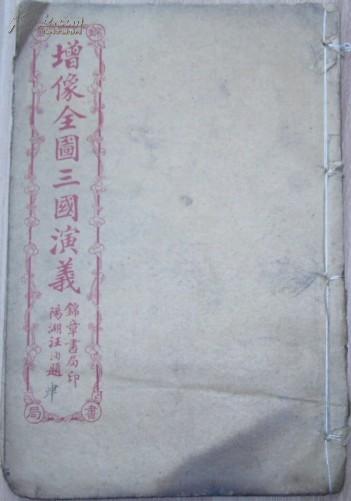 增像全圖三國演義
錦章書局印
陽湖汪洵題
書
局